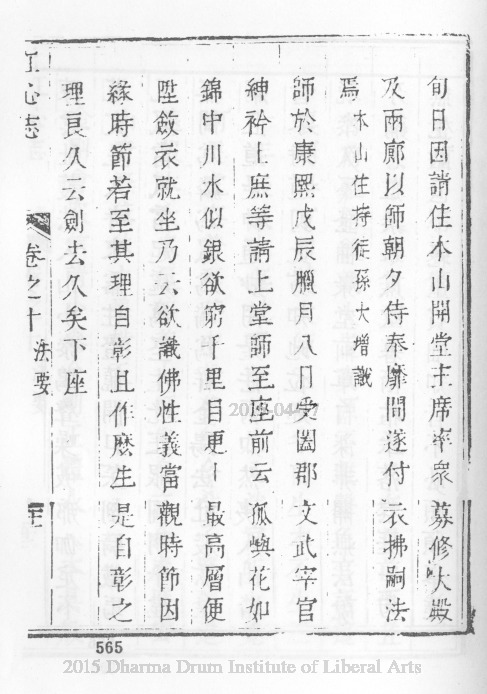 旬日因請住本山開堂主席率衆募修大殿
及兩廊以師朝夕侍奉靡間遂付衣拂嗣法
焉本山住持徒孫大增識
師於康熙戊辰臘月八日受闔郡文武宰官
紳衿士庶等請上堂師至座前云孤嶼花如
錦中川水似銀欲窮千里目更上最高層便
陞斂衣就坐乃云欲識佛性義當觀時節因
緣時節若至其理自彰且作麽生是自彰之
理良久云劍去久矣下座
江心志
卷之十 法要
565
2015 Dharma Drum Institute of Liberal Arts